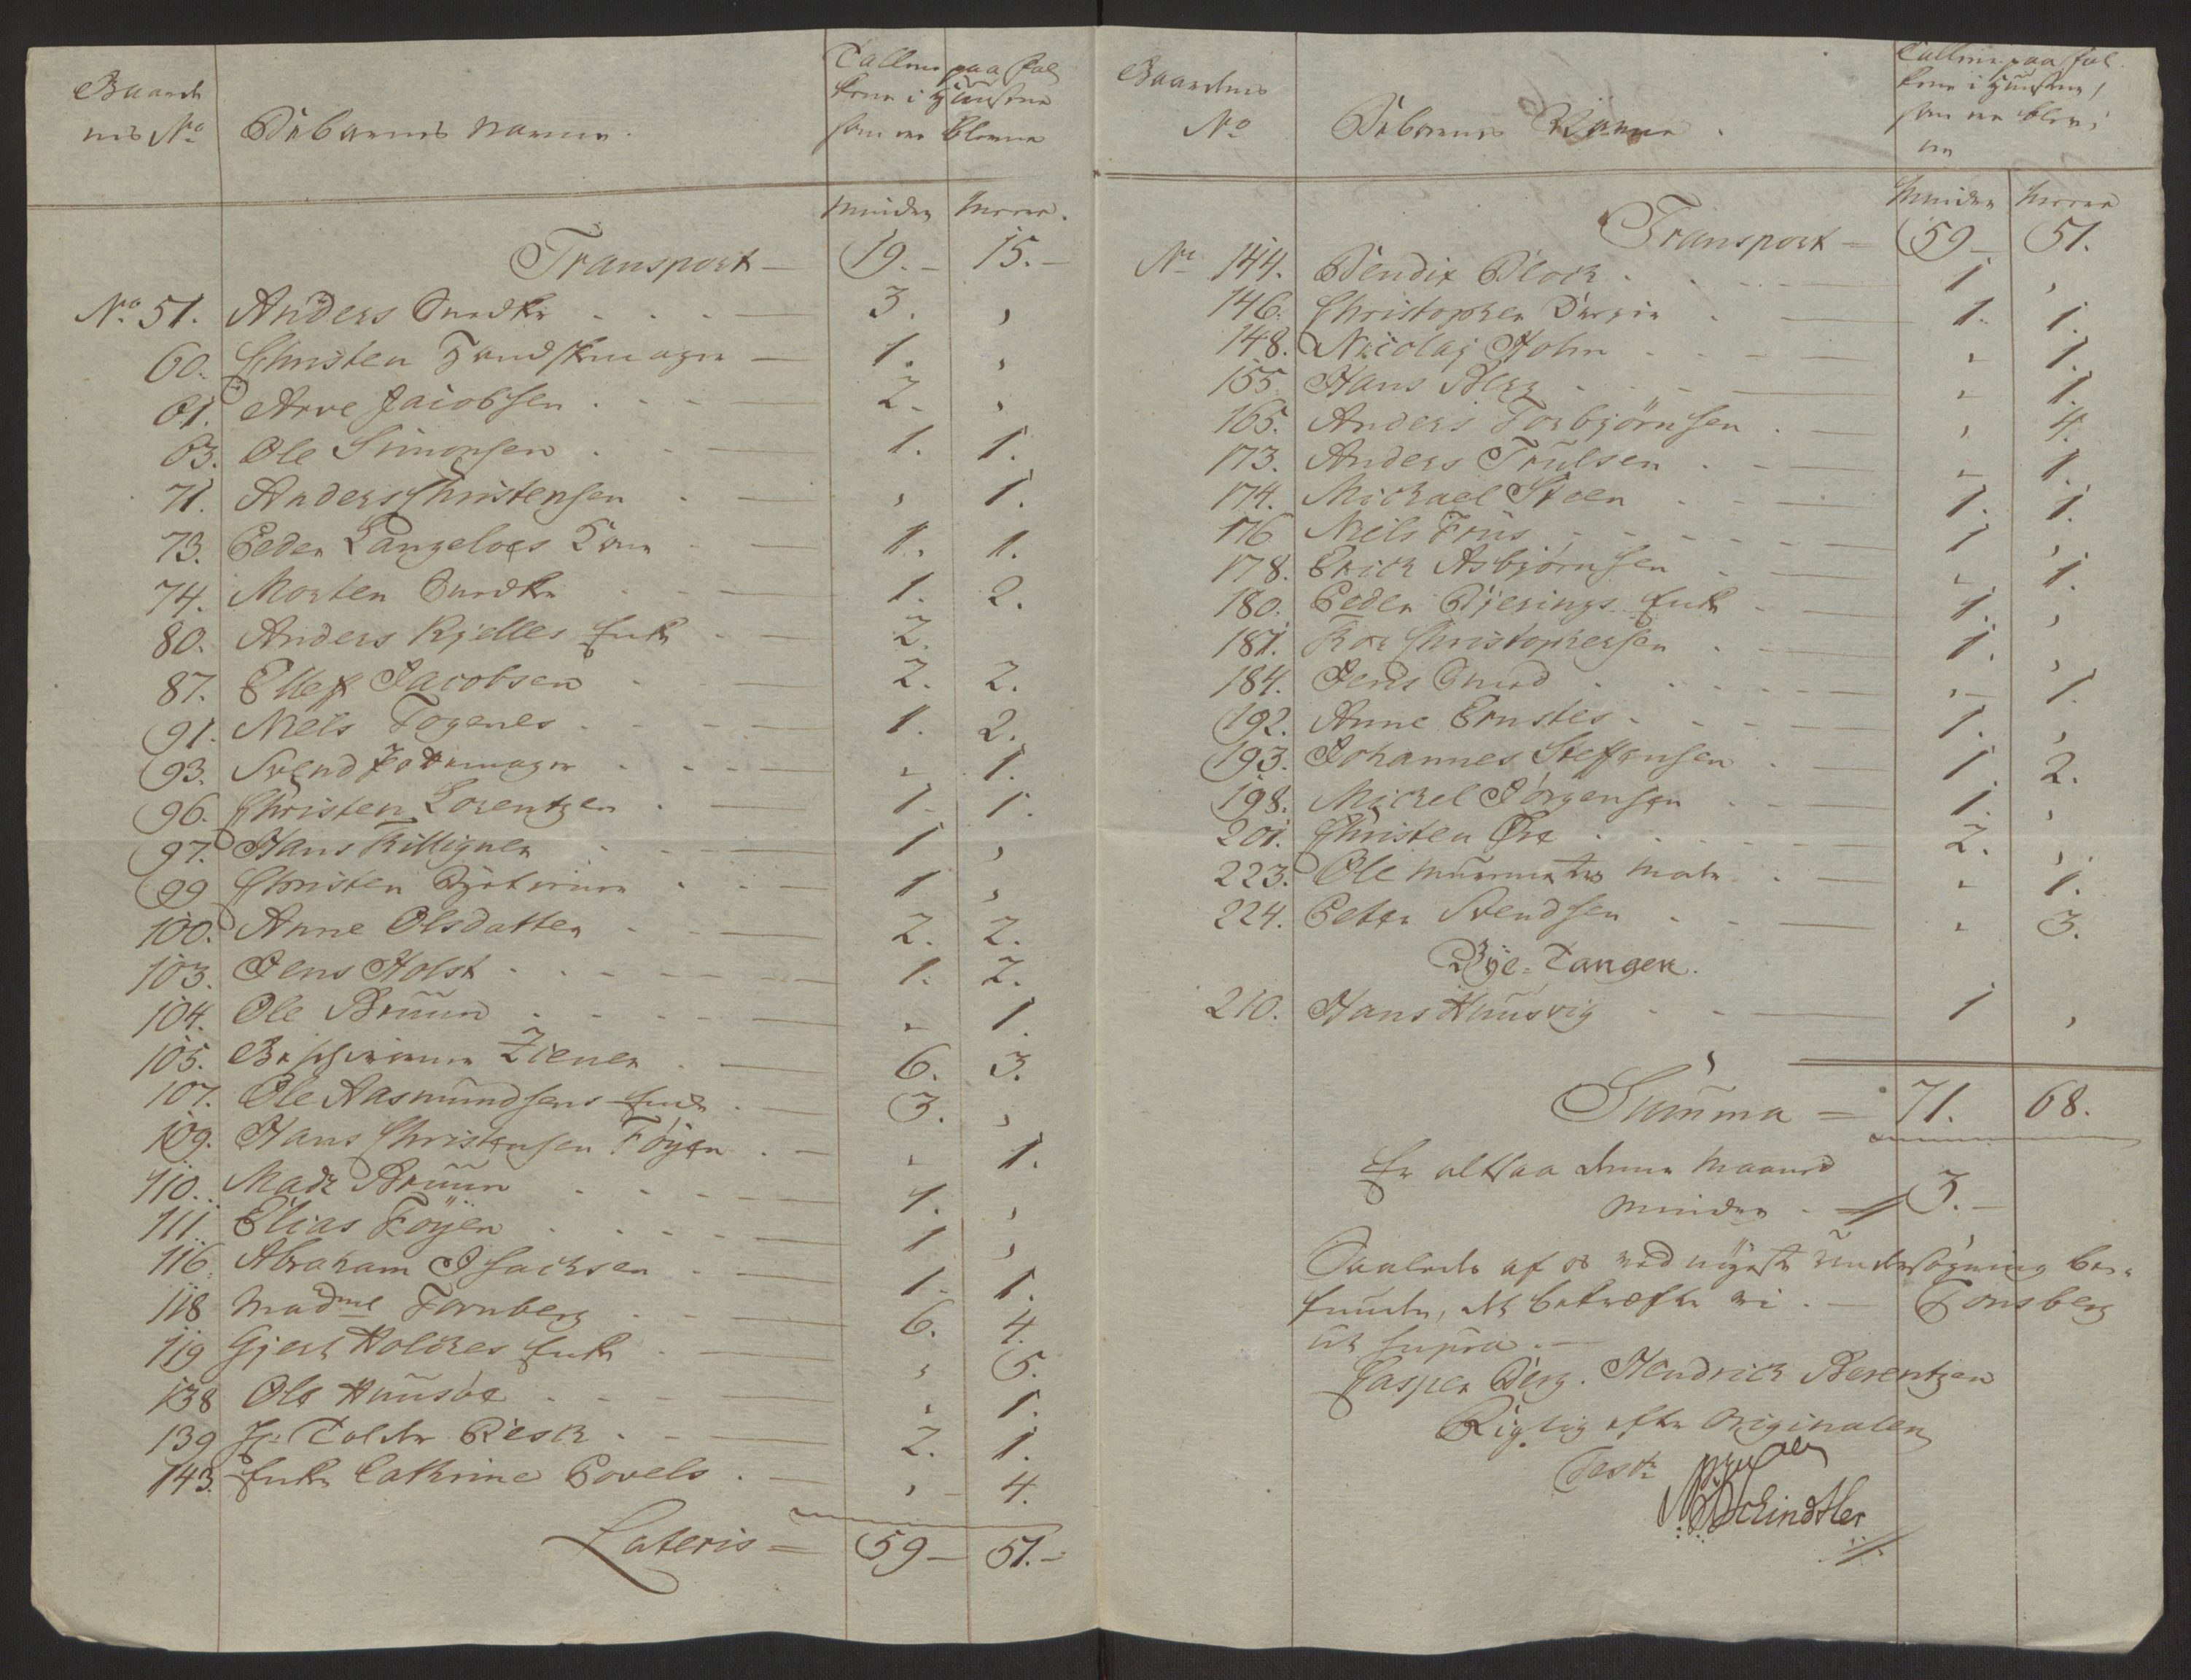 Gaard
nes No
Beboernes Navne.
Tallene paa fol
kene i Huusene
som ere blevne
minder
meere.
Transport — 19. — 15. —
No. 51. Anders Snedker 3. ,
60. Christen Handskemager 1. ,
61. Arve Jacobsen 2. ,
63. Ole Simonsen 1. 1.
71. Anders Christensen , 1.
73. Peder Langeloes 1. 1.
74. Morten Snedker 1. 2.
80. Anders Kjelles Enke 2.
87. Ellef Jacobsen 2. 2.
91. Niels Togenes 1. 2.
93. Svend Pottemager , 1.
96. Christen Lorentzen 1. 1.
97. Hans Killigner 1 ,
99 Christen 1 ,
100. Anne Olsdatter 2. 2.
103. Jens Holst 1. 2.
104. Ole Bruun , 1.
105. Ziener 6. 3.
107. Ole Aasmundsens Enke 3. ,
109. Hans Christensen Föyen , 1.
110. Madz Bruun 1. ,
111. Elias Föyen 1 ,
116 Abraham Isachsen 1. 1.
118 Madme Fornberg 6. 4.
119 Gjert Holckes Enke , 5.
138 Ole Huusöe , 1.
139 Hr. Tolder Resch 2. 1.
143. Enke Cathrine Povels , 4.
Lateris = 59 — 51. —
Gaardenes
No
Beboernes Navne.
Tallene paa fol
kene i Huusene,
som ere blev,
ne
minder
meere
Transport — 59 — 51.
No 144. Bendix Block 1 ,
146. Christopher 1. 1.
148. Nicolaj Holm , 1.
155 Hans Berg , 1.
165. Anders Torbjörnsen , 4.
173. Anders Trulsen , 1.
174. Michael Steen 1. 1.
176 Niels Friis 1 ,
178. Erich Asbjörnsen , 1.
180. Peder Bjerings Enke 1. ,
181. Christophersen 1. ,
184. Jens Smed , 1.
192. Anne Ernstes 1. ,
193. Johannes Steffensen 1. 2.
198. Michel Jörgensen 1. ,
201. Christen Öre 2. ,
223. Ole Muurmester , 1.
224. Peter Svendsen , 3.
Bye-Tangen.
210. Hans Huusvig 1 ,
Summa = 71. 68.
Er altsaa denne Maaned
minder — 3. —
Saaledes af os ved nöyeste undersögning be-
funden, det bekræfter vi. — Tonsberg
ut supra. —
Casper Berg. Hendrich Berentzen
Rigtig efter Originalen
Test:
Schindtler